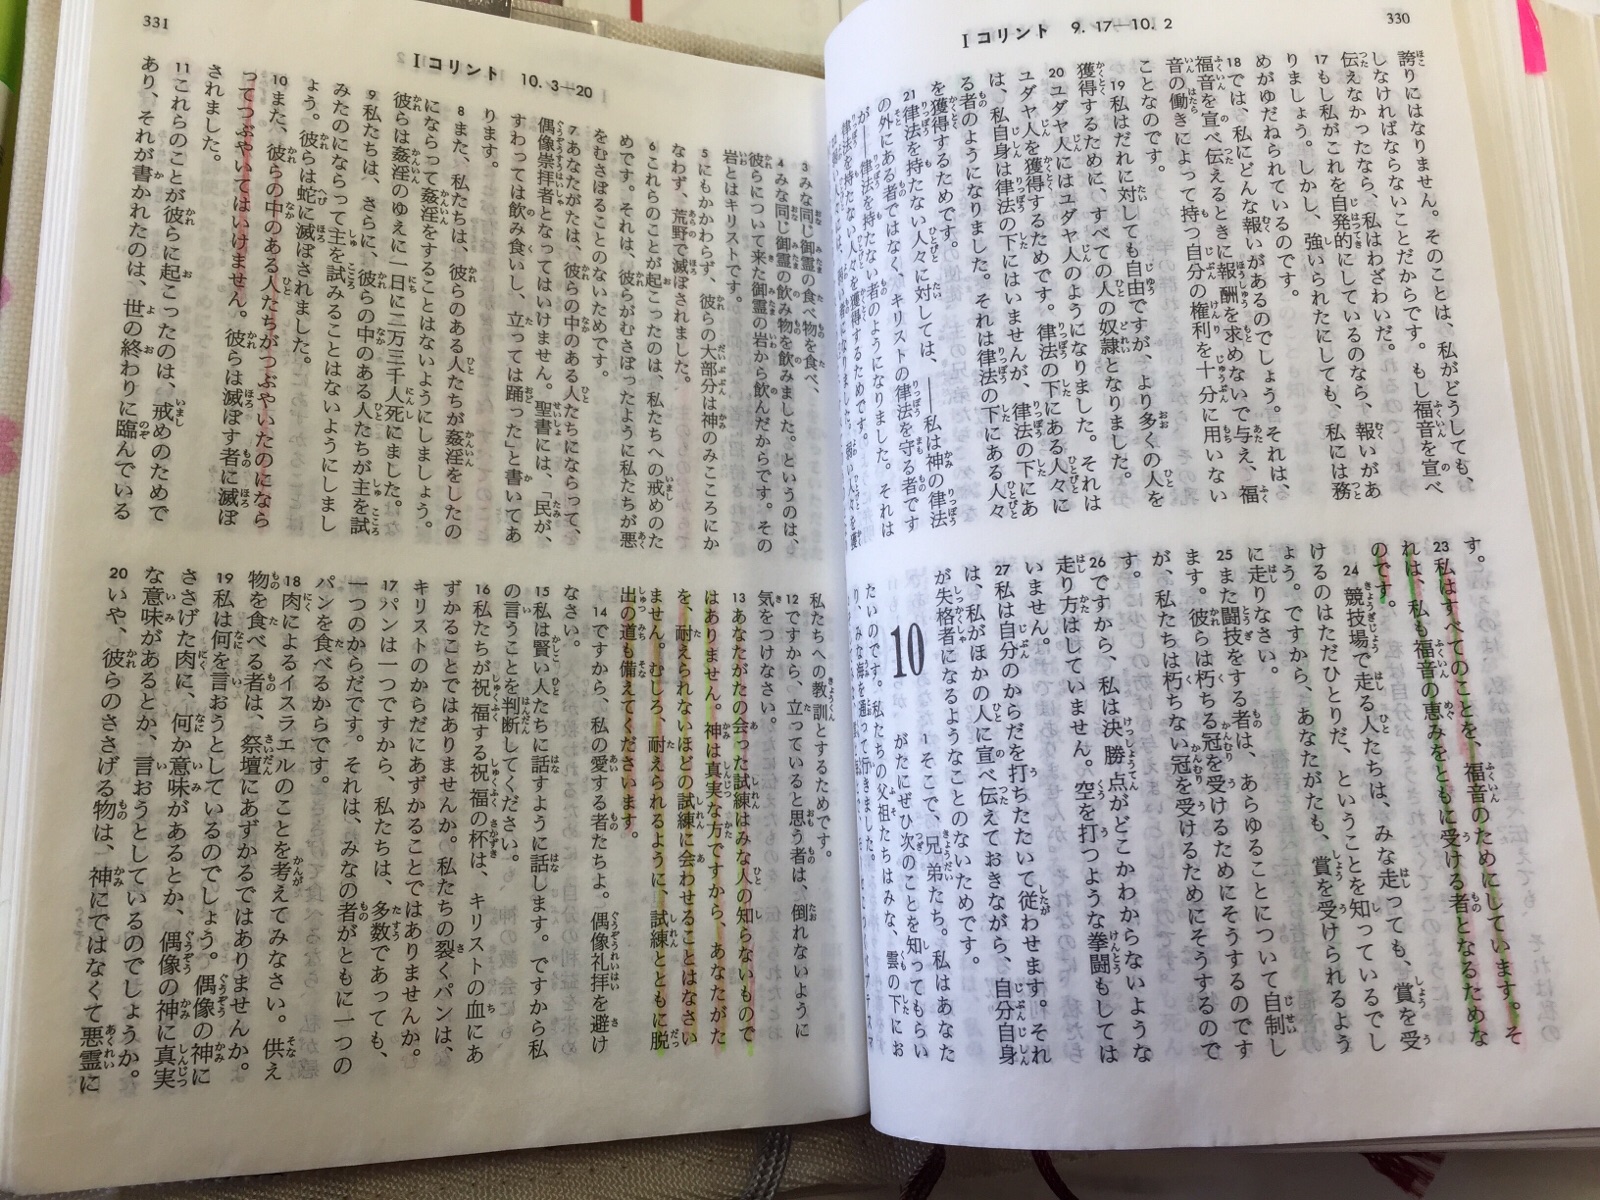 330
Ⅰコリント 9. 17—10. 2
誇りにはなりません。そのことは、私がどうしても、
しなければならないことだからです。もし福音を宣べ
伝えなかったなら、私はわざわいだ。
17もし私がこれを自発的にしているのなら、報いがあ
りましょう。しかし、強いられたにしても、私には務
めがゆだねられているのです。
18では、私にどんな報いがあるのでしょう。それは、
福音を宣べ伝えるときに報酬を求めないで与え、福
音の働きによって持つ自分の権利を十分に用いない
ことなのです。
19私はだれに対しても自由ですが、より多くの人を
獲得するために、すべての人の奴隷となりました。
20ユダヤ人にはユダヤ人のようになりました。それは
ユダヤ人を獲得するためです。律法の下にある人々に
は、私自身は律法の下にはいませんが、律法の下にあ
る者のようになりました。それは律法の下にある人々
を獲得するためです。
21律法を持たない人々に対しては、——私は神の律法
の外にある者ではなく、キリストの律法を守る者です
が——律法を持たない者のようになりました。それは
律法を持たない人々を獲得するためです。
す。
23私はすべてのことを、福音のためにしています。そ
れは、私も福音の恵みをともに受ける者となるためな
のです。
24競技場で走る人たちは、みな走っても、賞を受
けるのはただひとりだ、ということを知っているでし
ょう。ですから、あなたがたも、賞を受けられるよう
に走りなさい。
25また闘技をする者は、あらゆることについて自制し
ます。彼らは朽ちる冠を受けるためにそうするのです
が、私たちは朽ちない冠を受けるためにそうするので
す。
26ですから、私は決勝点がどこかわからないような
走り方はしていません。空を打つような拳闘もしては
いません。
27私は自分のからだを打ちたたいて従わせます。それ
は、私がほかの人に宣べ伝えておきながら、自分自身
が失格者になるようなことのないためです。
10
1そこで、兄弟たち。私はあなた
がたにぜひ次のことを知ってもらい
たいのです。私たちの父祖たちはみな、雲の下にお
り、みな海を通って行きました。
331
Ⅰコリント 10. 3—20
3みな同じ御霊の食べ物を食べ、
4みな同じ御霊の飲み物を飲みました。というのは、
彼らについて来た御霊の岩から飲んだからです。その
岩とはキリストです。
5にもかかわらず、彼らの大部分は神のみこころにか
なわず、荒野で滅ぼされました。
6これらのことが起こったのは、私たちへの戒めのた
めです。それは、彼らがむさぼったように私たちが悪
をむさぼることのないためです。
7あなたがたは、彼らの中のある人たちにならって、
偶像崇拝者となってはいけません。聖書には、「民が、
すわっては飲み食いし、立っては踊った」と書いてあ
ります。
8また、私たちは、彼らのある人たちが姦淫をしたの
にならって姦淫をすることはないようにしましょう。
彼らは姦淫のゆえに一日に二万三千人死にました。
9私たちは、さらに、彼らの中のある人たちが主を試
みたのにならって主を試みることはないようにしまし
ょう。彼らは蛇に滅ぼされました。
10また、彼らの中のある人たちがつぶやいたのになら
ってつぶやいてはいけません。彼らは滅ぼす者に滅ぼ
されました。
11これらのことが彼らに起こったのは、戒めのためで
あり、それが書かれたのは、世の終わりに臨んでいる
私たちへの教訓とするためです。
12ですから、立っていると思う者は、倒れないように
気をつけなさい。
13あなたがたの会った試練はみな人の知らないもので
はありません。神は真実な方ですから、あなたがた
を、耐えられないほどの試練に会わせることはなさい
ません。むしろ、耐えられるように、試練とともに脱
出の道も備えてくださいます。
14ですから、私の愛する者たちよ。偶像礼拝を避け
なさい。
15私は賢い人たちに話すように話します。ですから私
の言うことを判断してください。
16私たちが祝福する祝福の杯は、キリストの血にあ
ずかることではありませんか。私たちの裂くパンは、
キリストのからだにあずかることではありませんか。
17パンは一つですから、私たちは、多数であっても、
一つのからだです。それは、みなの者がともに一つの
パンを食べるからです。
18肉によるイスラエルのことを考えてみなさい。供え
物を食べる者は、祭壇にあずかるではありませんか。
19私は何を言おうとしているのでしょう。偶像の神に
ささげた肉に、何か意味があるとか、偶像の神に真実
な意味があるとか、言おうとしているのでしょうか。
20いや、彼らのささげる物は、神にではなくて悪霊に